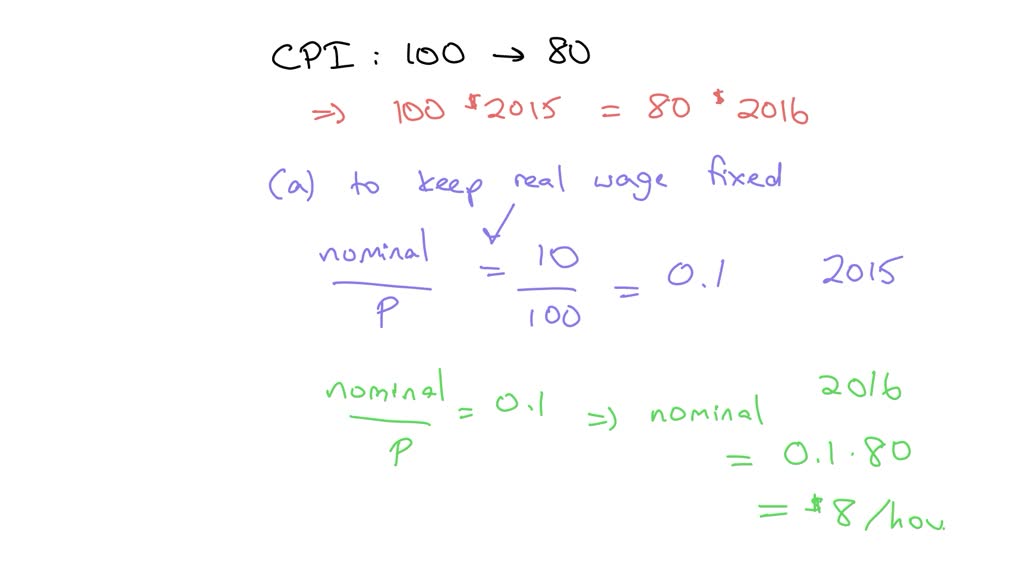 CPI : 100 → 80
⇒ 100 $2015 = 80 $2016
(a) to keep real wage fixed
nominal / P = 10 / 100 = 0.1 2015
nominal / P = 0.1 ⇒ nominal 2016
= 0.1 · 80
= $8 /hou